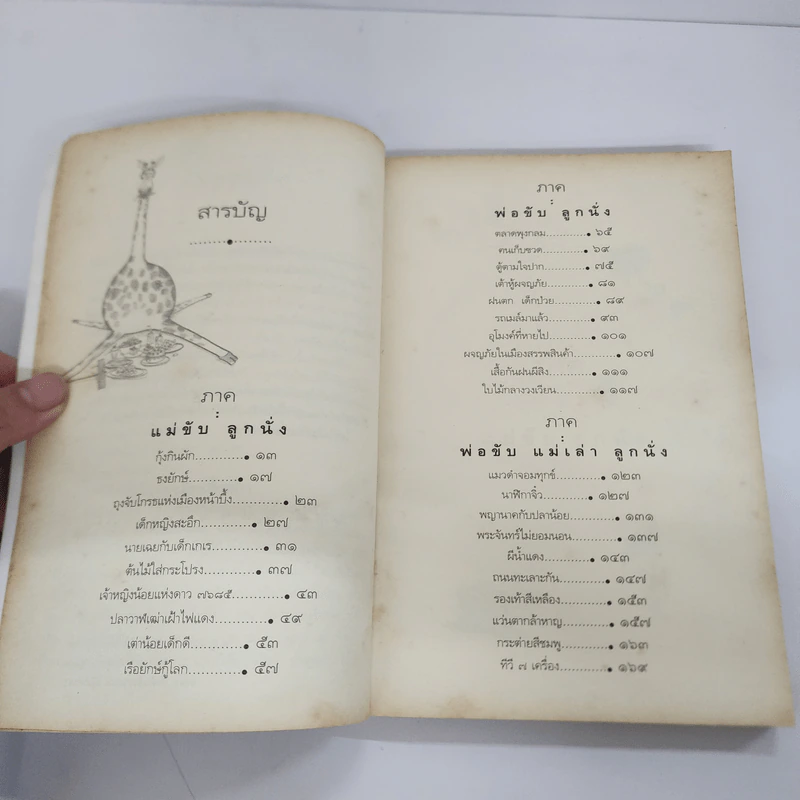 สารบัญ
ภาค
แม่ขับ : ลูกนั่ง
กุ้งกินผัก............● ๑๓
ธงยักษ์............● ๑๗
ถุงจับโกรธแห่งเมืองหน้าบึ้ง............● ๒๓
เด็กหญิงสะอึก............● ๒๗
นายเฉยกับเด็กเกเร............● ๓๑
ต้นไม้ใส่กระโปรง............● ๓๗
เจ้าหญิงน้อยแห่งดาว ๗๖๘๕............● ๔๓
ปลาวาฬเฒ่าเฝ้าไฟแดง............● ๔๙
เต่าน้อยเด็กดี............● ๕๓
เรือยักษ์กู้โลก............● ๕๗
ภาค
พ่อขับ : ลูกนั่ง
ตลาดพุงกลม............● ๖๕
คนเก็บขวด............● ๖๙
ตู้ตามใจปาก............● ๗๕
เต้าหู้ผจญภัย............● ๘๑
ฝนตก เด็กป่วย............● ๘๙
รถเมล์มาแล้ว............● ๙๓
อุโมงค์ที่หายไป............● ๑๐๑
ผจญภัยในเมืองสรรพสินค้า............● ๑๐๗
เสื้อกันฝนผีสิง............● ๑๑๑
ใบไม้กลางวงเวียน............● ๑๑๗
ภาค
พ่อขับ แม่เล่า : ลูกนั่ง
แมวดำจอมทุกข์............● ๑๒๓
นาฬิกาจิ๋ว............● ๑๒๗
พญานาคกับปลาน้อย............● ๑๓๑
พระจันทร์ไม่ยอมนอน............● ๑๓๗
ผีน้ำแดง............● ๑๔๓
ถนนทะเลาะกัน............● ๑๔๗
รองเท้าสีเหลือง............● ๑๕๓
แว่นตากล้าหาญ............● ๑๕๗
กระต่ายสีชมพู............● ๑๖๓
ทีวี ๗ เครื่อง............● ๑๖๙